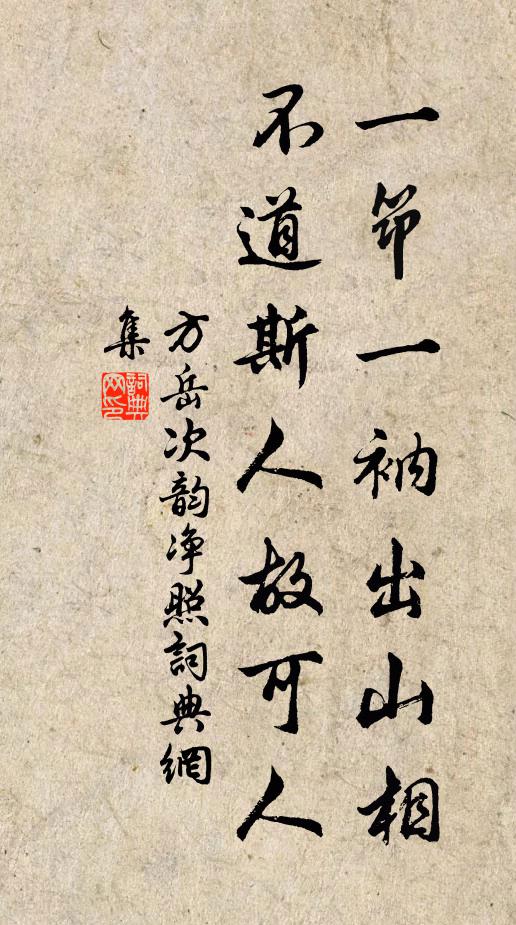 一筇一衲出山相
不道斯人故可人
方岳次韵净照詞典網
集
詞典
网印